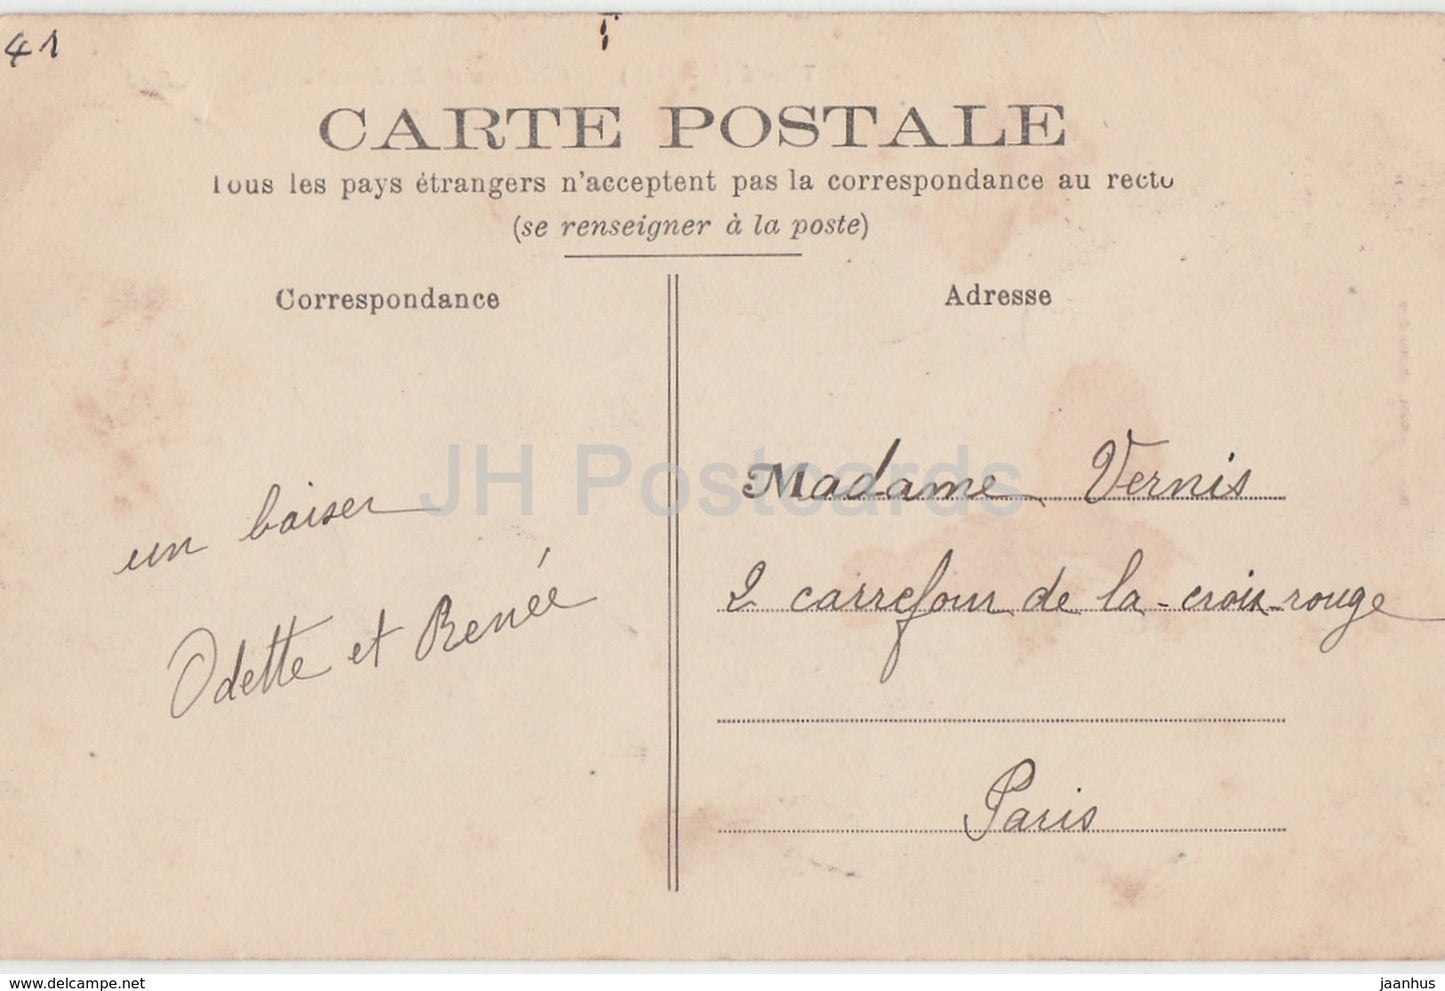 41
CARTE POSTALE
Tous les pays étrangers n'acceptent pas la correspondance au recto
(se renseigner à la poste)
Correspondance
Adresse
un baiser
Odette et Renée
Madame Vernis
2 carrefour de la-croix-rouge
Paris
JH Postcards
www.delcampe.net
jaanhus